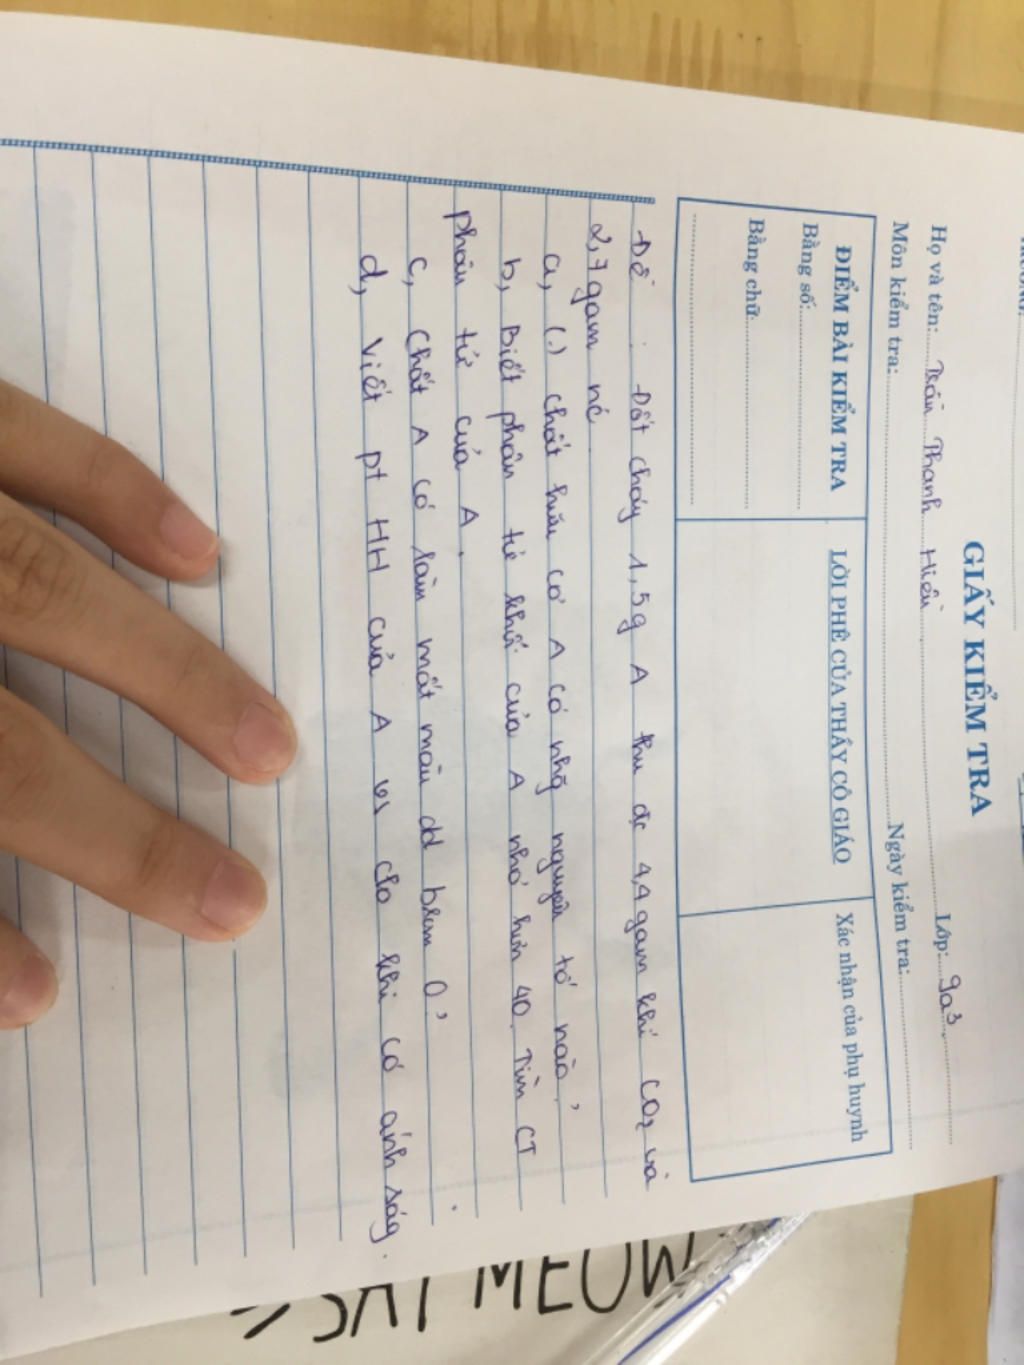 GIẤY KIỂM TRA
Họ và tên: Trần Thanh Hiền Lớp: 9a3
Môn kiểm tra: Ngày kiểm tra:
ĐIỂM BÀI KIỂM TRA
LỜI PHÊ CỦA THẦY CÔ GIÁO
Xác nhận của phụ huynh
Bằng số:
Bằng chữ
Đề : Đốt cháy 1,5g A thu đc 4,4 gam khí CO2 và
2,7 gam nc
a, (.) chất hữu cơ A có nhg nguyên tố nào,
b, Biết phân tử khối của A nhỏ hơn 40. Tìm CT
phân tử của A.
c, Chất A có làm mất màu dd brom 0'
d, Viết pt HH của A vs clo khi có ánh ság.
SAY MEOW